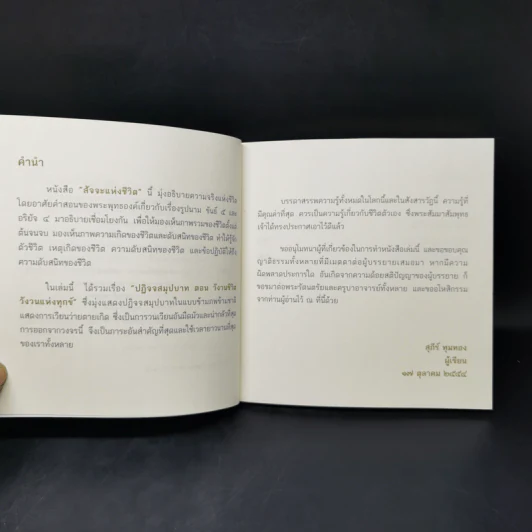 คำนำ
หนังสือ "สัจจะแห่งชีวิต" นี้ มุ่งอธิบายความจริงแห่งชีวิต
โดยอาศัยคำสอนของพระพุทธองค์เกี่ยวกับเรื่องรูปนาม ขันธ์ ๕ และ
อริยสัจ ๔ มาอธิบายเชื่อมโยงกัน เพื่อให้มองเห็นภาพรวมของชีวิตตั้งแต่
ต้นจนจบ มองเห็นภาพความเกิดของชีวิตและดับสนิทของชีวิต ทำให้รู้จัก
ตัวชีวิต เหตุเกิดของชีวิต ความดับสนิทของชีวิต และข้อปฏิบัติให้ถึง
ความดับสนิทของชีวิต
ในเล่มนี้ ได้รวมเรื่อง "ปฏิจจสมุปบาท ตอน วังวนชีวิต
วังวนแห่งทุกข์" ซึ่งมุ่งแสดงปฏิจจสมุปบาทในแบบข้ามภพข้ามชาติ
แสดงการเวียนว่ายตายเกิด ซึ่งเป็นการวนเวียนอันมืดมัวและน่ากลัวที่สุด
การออกจากวงจรนี้ จึงเป็นภาระอันสำคัญที่สุดและใช้เวลายาวนานที่สุด
ของเราทั้งหลาย
บรรดาสรรพความรู้ทั้งหมดในโลกนี้และในสังสารวัฏนี้ ความรู้ที่
มีคุณค่าที่สุด ควรเป็นความรู้เกี่ยวกับชีวิตตัวเอง ซึ่งพระสัมมาสัมพุทธ
เจ้าได้ทรงประกาศเอาไว้ดีแล้ว
ขออนุโมทนาผู้ที่เกี่ยวข้องในการทำหนังสือเล่มนี้ และขอขอบคุณ
ญาติธรรมทั้งหลายที่มีเมตตาต่อผู้บรรยายเสมอมา หากมีความ
ผิดพลาดประการใด อันเกิดจากความด้อยสติปัญญาของผู้บรรยาย ก็
ขอขมาต่อพระรัตนตรัยและครูบาอาจารย์ทั้งหลาย และขออโหสิกรรม
จากท่านผู้อ่านไว้ ณ ที่นี้ด้วย
สุภีร์ ทุมทอง
ผู้เขียน
๑๗ ตุลาคม ๒๕๕๔